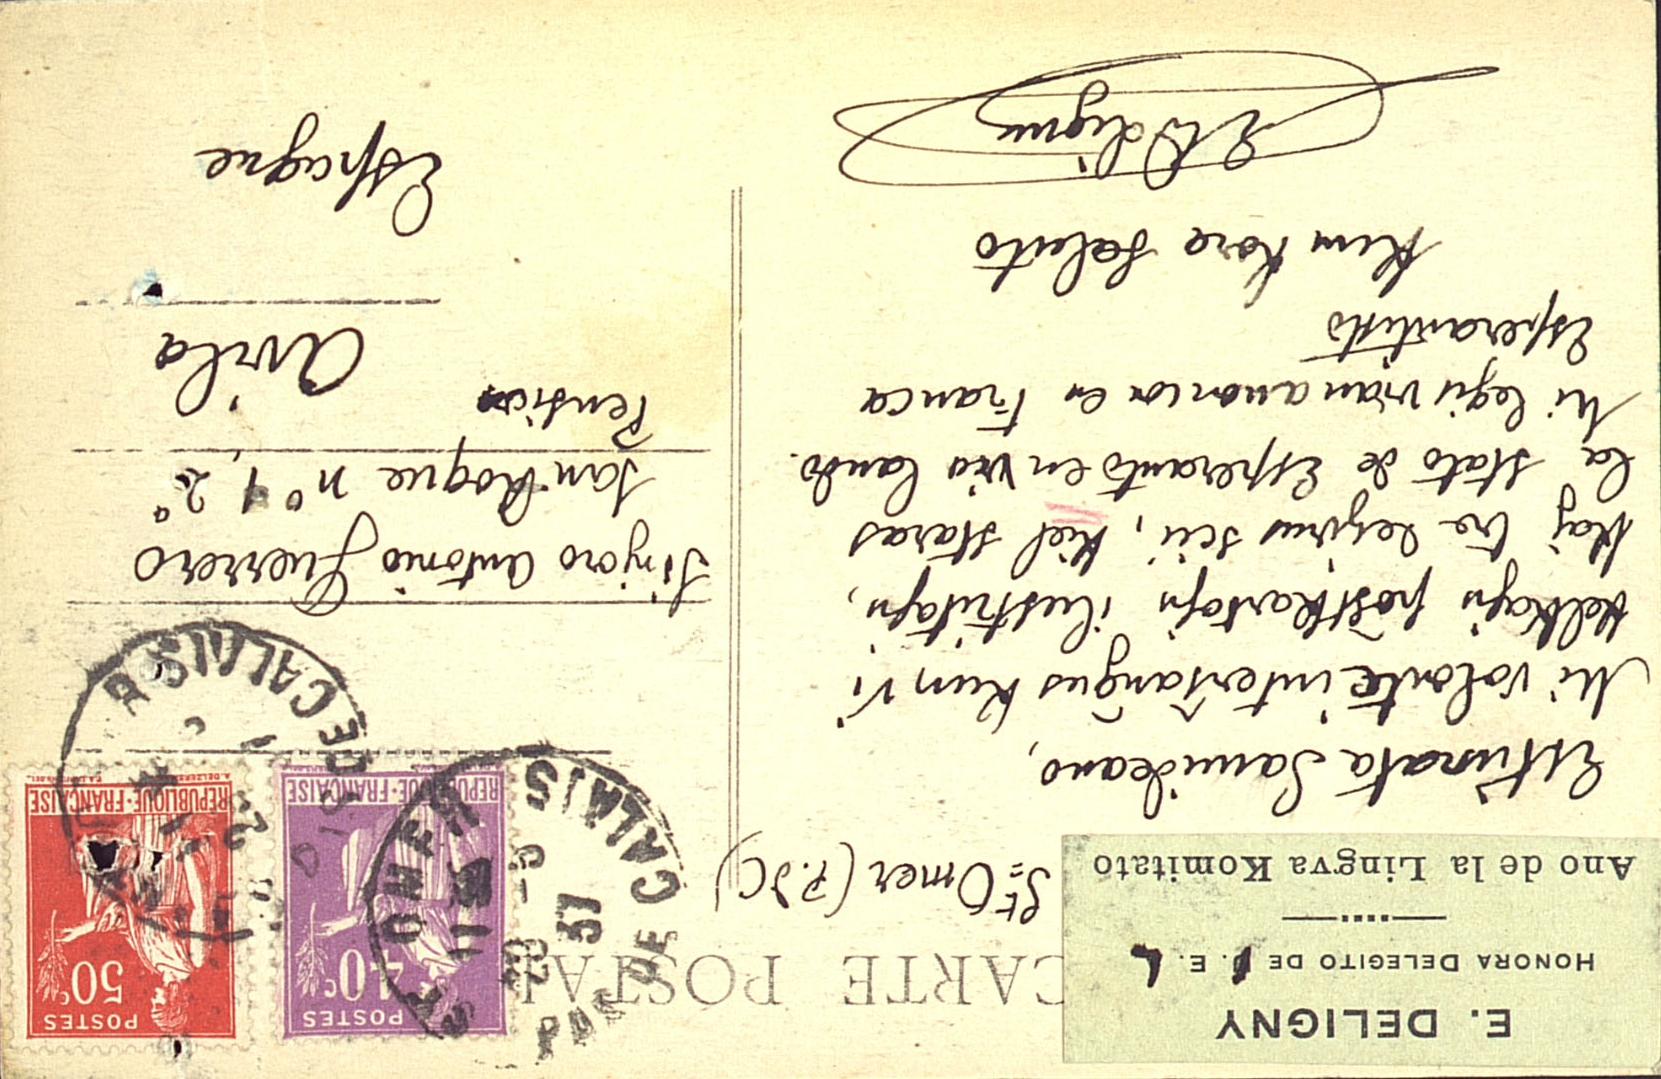 E. DELIGNY
HONORA DELEGITO DE U. E. L
Ano de la Lingva Komitato
CARTE POSTALE
St Omer (P. d C)
Estimata Samideano,
Mi volonte interŝanĝus kun vi
kelkajn poŝtkartojn ilustritajn,
kaj tre dezirus scii, kiel staras
la stato de Esperanto en via lando.
Mi legis vian anoncon en Franca
Esperantisto
Kun kora saluto
E Deligny
Sinjoro Antonio Guerrero
San Roque nº 1, 2º
Pension
Avila
Espagne
POSTES
40c
REPUBLIQUE-FRANÇAISE
POSTES
50c
REPUBLIQUE-FRANÇAISE
ST OMER
PAS DE CALAIS
37